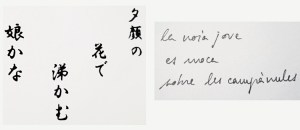 夕顔の
花で
洟かむ
娘かな
la noia jove
es moca
sobre les campànules